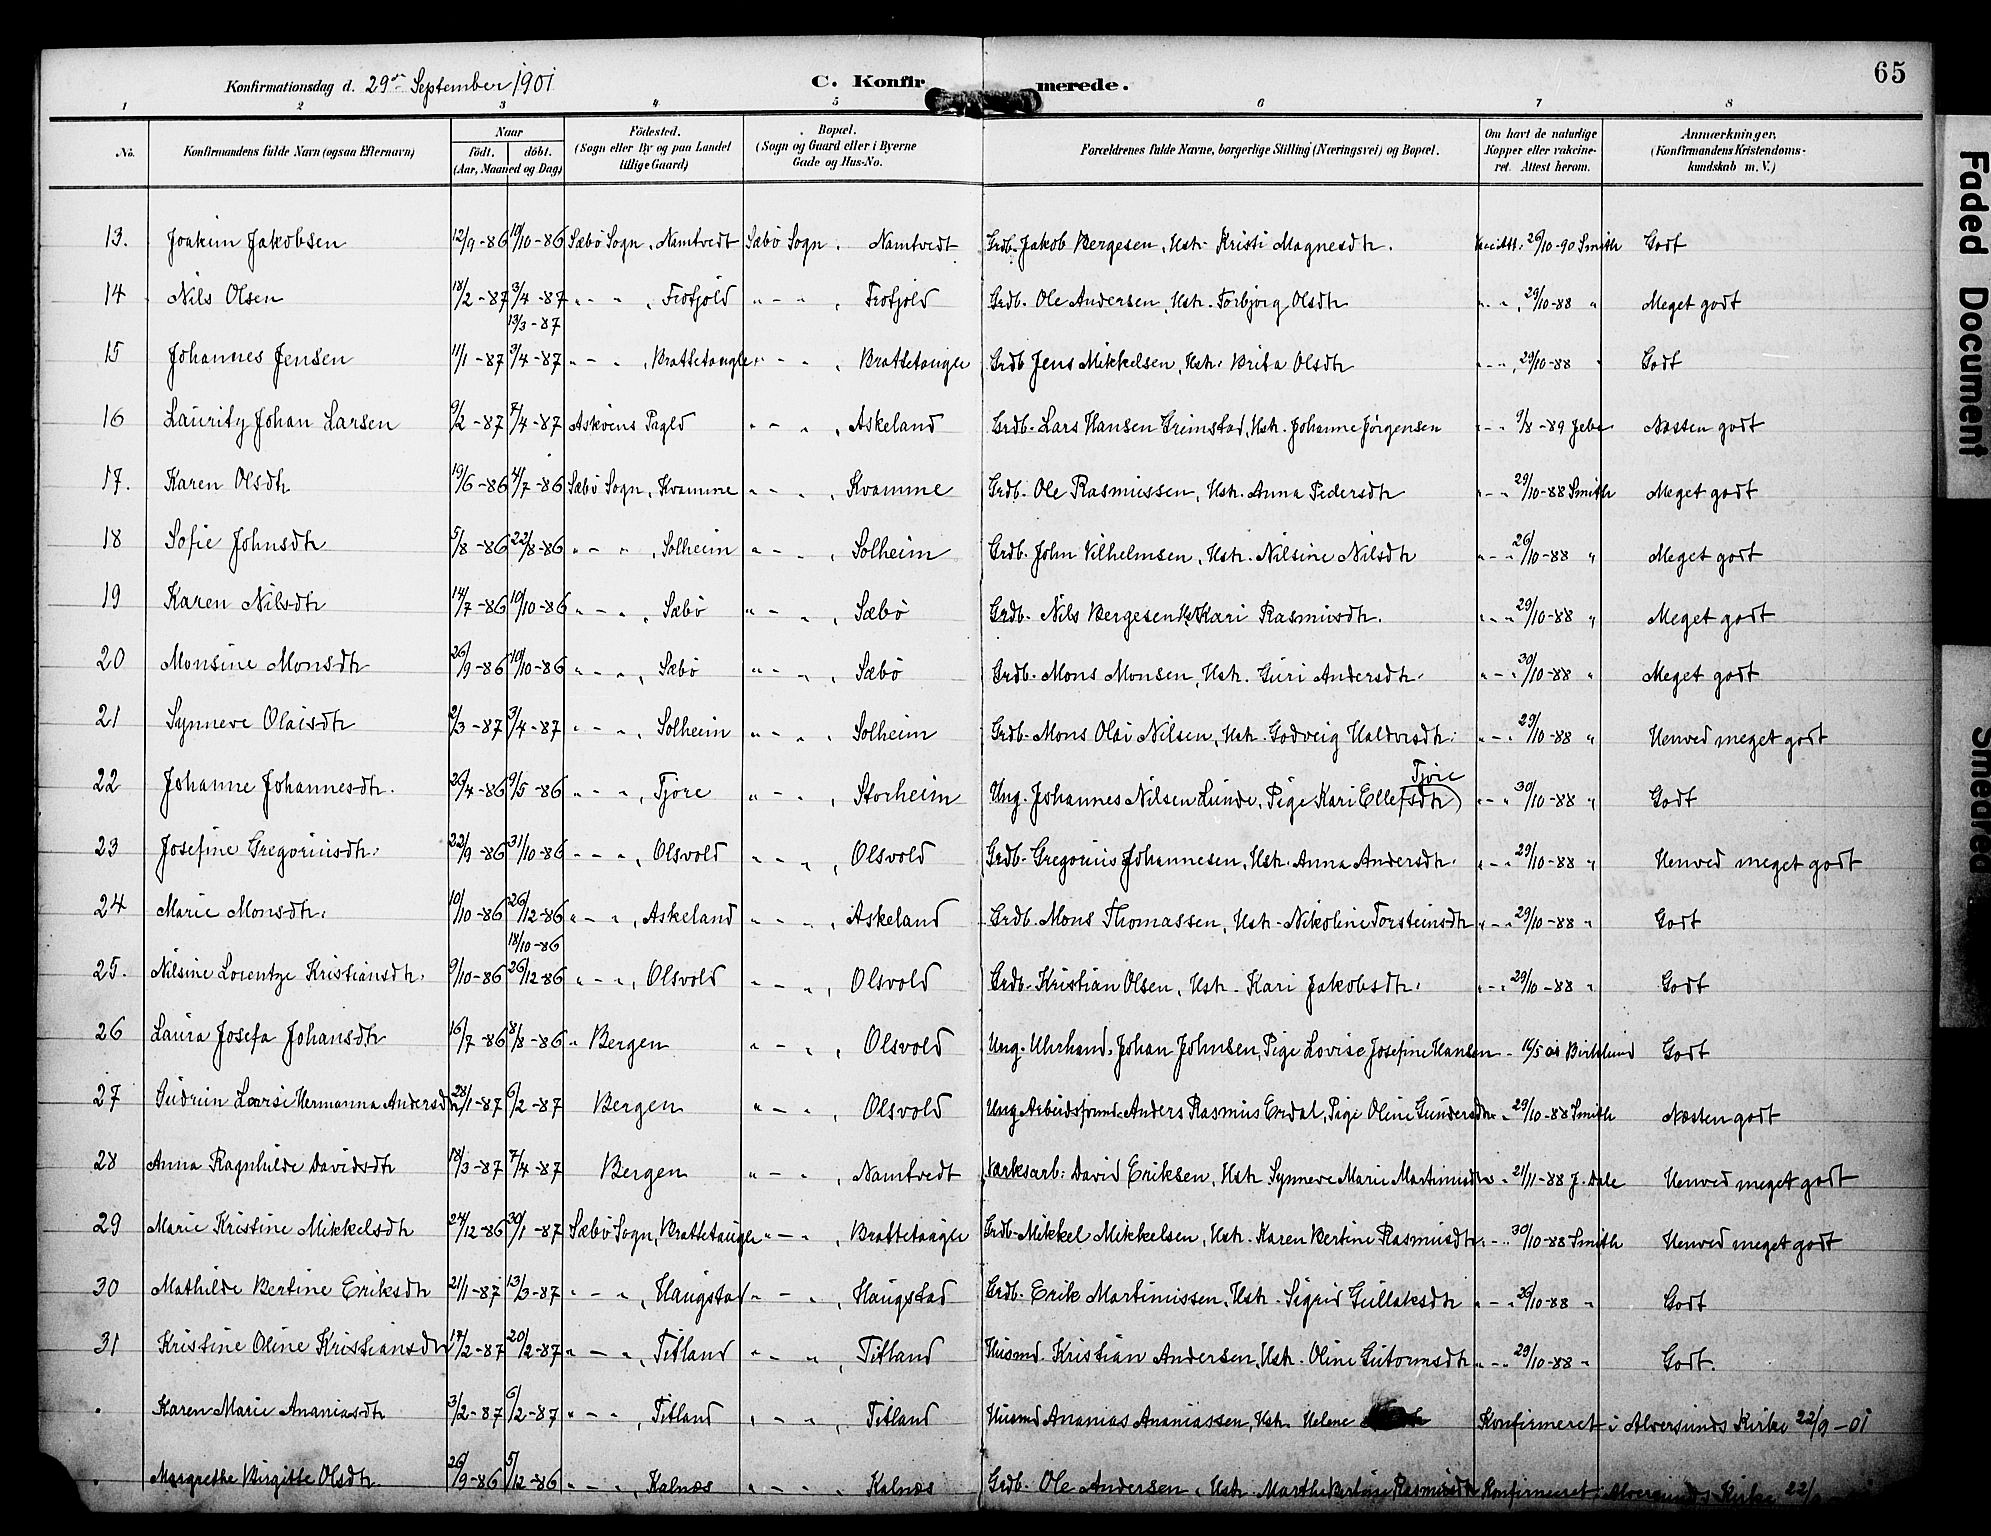 65
Konfirmationsdag d. 29de September 1901
C. Konfirmerede.
1 2 3 4 5 6 7 8
No. Konfirmandens fulde Navn (ogsaa Efternavn) Naar født. døbt. (Aar, Maaned og Dag) Fødested. (Sogn eller By og paa Landet tillige Gaard) Bopæl. (Sogn og Gaard eller i Byerne Gade og Hus-No. Forældrenes fulde Navne, borgerlige Stilling (Næringsvei) og Bopæl. Om havt de naturlige Kopper eller vakcineret. Attest herom. Anmærkninger, (Konfirmandens Kristendomskundskab m. V.)
13. Joakim Jakobsen 12/9-86 10/10-86 Sæbø Sogn, Namtvedt Sæbø Sogn, Namtvedt Grdb. Jakob Bergesen, Hstr. Kristi Magnesdtr. 29/10-90 Smith Godt
14 Nils Olsen 18/2-87 3/4-87 " - ", Trofjold " - ", Trofjold Grdb. Ole Andersen, Hstr. Torbjørg Olsdtr " - ", 29/10-88 " Meget godt
13/3-87
15 Johannes Jensen 11/1-87 3/4-87 " - ", Brattetaugle " - ", Brattetaugle Grdb Jens Mikkelsen, Hstr. Brita Olsdtr " - ", 29/10-88 " Godt
16 Lauritz Johan Larsen 9/2-87 7/4-87 Askøens Pgld " - ", Askeland Grdb. Lars Hansen Grimstad, Hstr. Johanne Jørgensen " - " 9/8-89 Næsten godt
17. Karen Olsdtr 19/6-86 4/7-86 Sæbø Sogn, Kvamme " - ", Kvamme Grdb. Ole Rasmussen, Hstr. Anna Pedersdtr " - " 29/10-88 Smith Meget godt
18 Sofie Johnsdtr 5/8-86 22/8-86 " - ", Solheim " - ", Solheim Grdb. John Vilhelmsen, Hstr. Nilsine Nilsdtr " - " 26/10-88 " Meget godt
19 Karen Nilsdtr 14/7-86 10/10-86 " - ", Sæbø " - ", Sæbø Grdb. Nils Bergesen, Hst Kari Rasmusdtr. " - " 29/10-88 " Meget godt
20 Monsine Monsdtr 26/9-86 10/10-86 " - ", Sæbø " - ", Sæbø Grdb. Mons Monsen, Hstr. Guri Andersdtr. " - " 30/10-88 " Meget godt
21 Synneve Olaisdtr 2/3-87 3/4-87 " - ", Solheim " - ", Solheim Grdb. Mons Olai Nilsen, Hstr. Godveig Haldorsdtr. " - " 29/10-88 " Henved meget godt
22 Johanne Johannesdtr. 26/4-86 9/5-86 " - ", Tjore " - ", Storheim Ung. Johannes Nilsen Lunde, Pige Kari Ellefsdtr Tjore " - " 30/10-88 " Godt
23 Josefine Gregoriusdtr. 22/9-86 31/10-86 " - ", Olsvold " - ", Olsvold Grdb. Gregorius Johannesen, Hstr. Anna Andersdtr. " - " 29/10-88 " Henved meget godt
24 Marie Monsdtr. 10/10-86 26/12-86 " - ", Askeland " - ", Askeland Grdb. Mons Thomassen, Hstr. Nikoline Torsteinsdtr " - " 29/10-88 " Godt
18/10-86
25. Nilsine Lorentze Kristiansdtr. 9/10-86 26/12-86 " - ", Olsvold " - ", Olsvold Grdb. Kristian Olsen, Hstr. Kari Jakobsdtr. " - " 29/10-88 " Godt
26 Laura Josefa Johansdtr 16/7-86 8/8-86 " Bergen " - ", Olsvold Ung. Uhrhand. Johan Johnsen, Pige Lovise Josefine Hansen - 16/5 01 Birkelund Godt
27 Gudrun Lovise Hermanna Andersdtr 28/1-87 6/2-87 Bergen " - ", Olsvold Ung Arbeidsfomd. Anders Rasmus Erdal, Pige Oline Gundersdtr " 29/10-88 Smith Næsten godt
28 Anna Ragnhilde Davidsdtr 18/3-87 7/4-87 Bergen " - ", Namtvedt Værksarb. David Eriksen, Hstr Synneve Marie Martinusdtr " 21/11-88 J. Dale Henved meget godt
29 Marie Kristine Mikkelsdtr 24/12-86 30/1-87 Sæbø Sogn, Brattetaugle " - ", Brattetaugle Grdb. Mikkel Mikkelsen, Hstr. Karen Bertine Rasmusdtr " - " 30/10-88 Smith Henved meget godt
30 Mathilde Bertine Eriksdtr 21/1-87 13/3-87 " - ", Haugstad " - ", Haugstad Grdb. Erik Martinussen, Hstr. Sigrid Gullaksdtr " - " 26/10-88 " Godt
31 Kristine Oline Kristiansdtr 17/2-87 20/2-87 " - ", Titland " - ", Titland Husmd. Kristian Andersen, Hstr. Oline Gutormsdtr " - " 29/10-88 " Godt.
" Karen Marie Ananiasdtr 3/2-87 6/2-87 " - ", Titland " - ", Titland Husmd Ananias Ananiassen, Hstr. Helene Konfirmeret i Alversunds Kirke 22/9-01
" Margrethe Birgitte Olsdtr. 26/9-86 5/12-86 " - ", Kalnæs " - ", Kalnæs Grdb. Ole Andersen, Hstr. Marthe Bertine Rasmusdtr Konfirmeret i Alversunds Kirke 22/9
Faded Document
Smeared